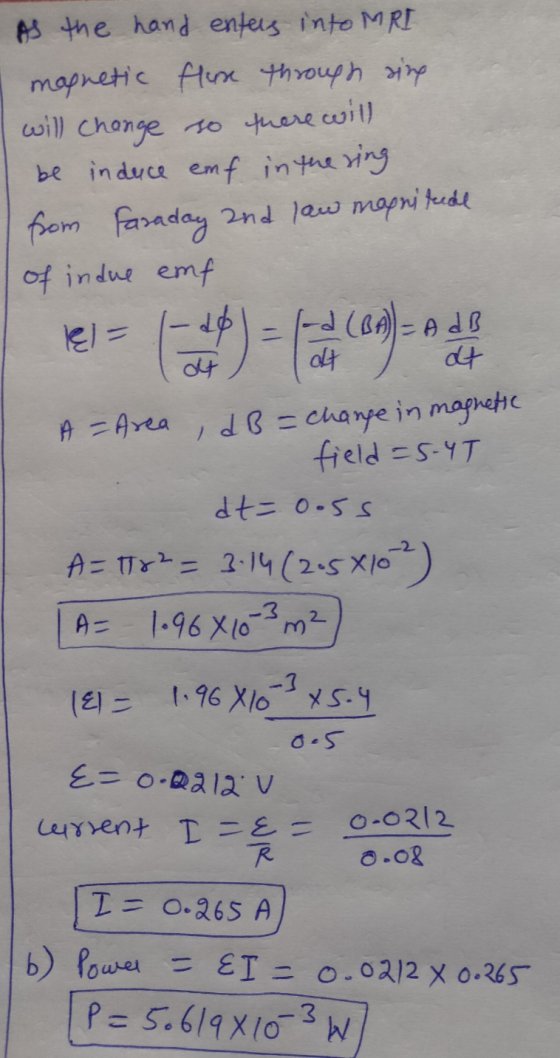 As the hand enters into MRI
magnetic flux through ring
will change so there will
be induce emf in the ring
from Faraday 2nd law magnitude
of indue emf
|ε| = (-dϕ/dt) = (-d(BA)/dt) = A dB/dt
A = Area , dB = change in magnetic
field = 5.4T
dt = 0.5 s
A = πr² = 3.14 (2.5 X10⁻²)
A = 1.96 X10⁻³ m²
|ε| = 1.96 X10⁻³ x 5.4 / 0.5
ε = 0.0212 V
current I = ε/R = 0.0212/0.08
I = 0.265 A
b) Power = εI = 0.0212 X 0.265
P = 5.619 X10⁻³ W